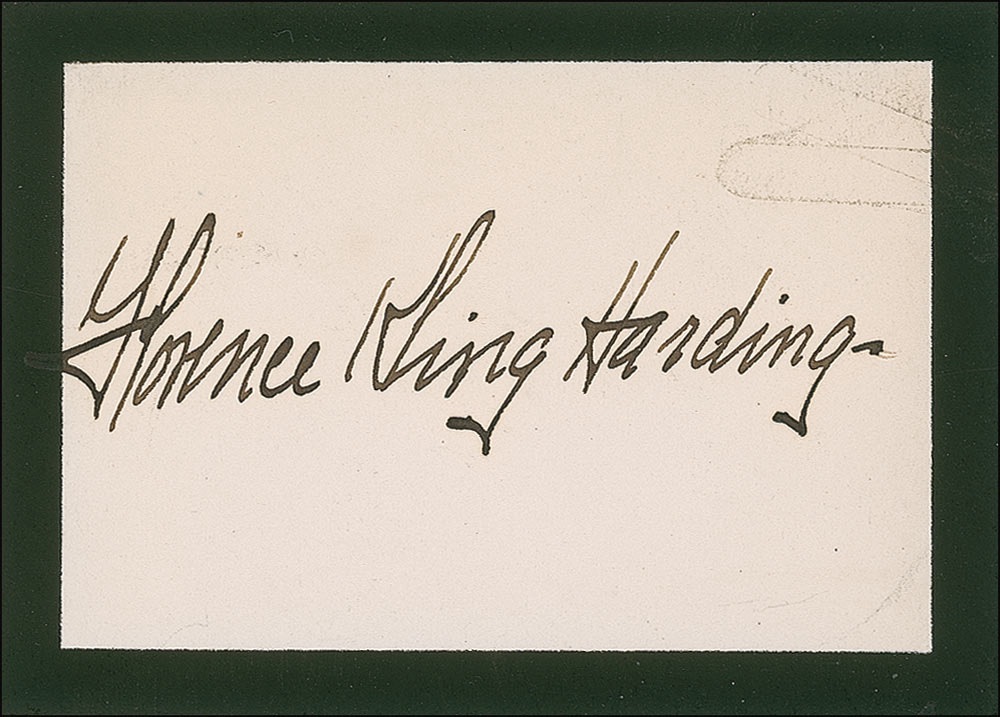 Florence Kling Harding